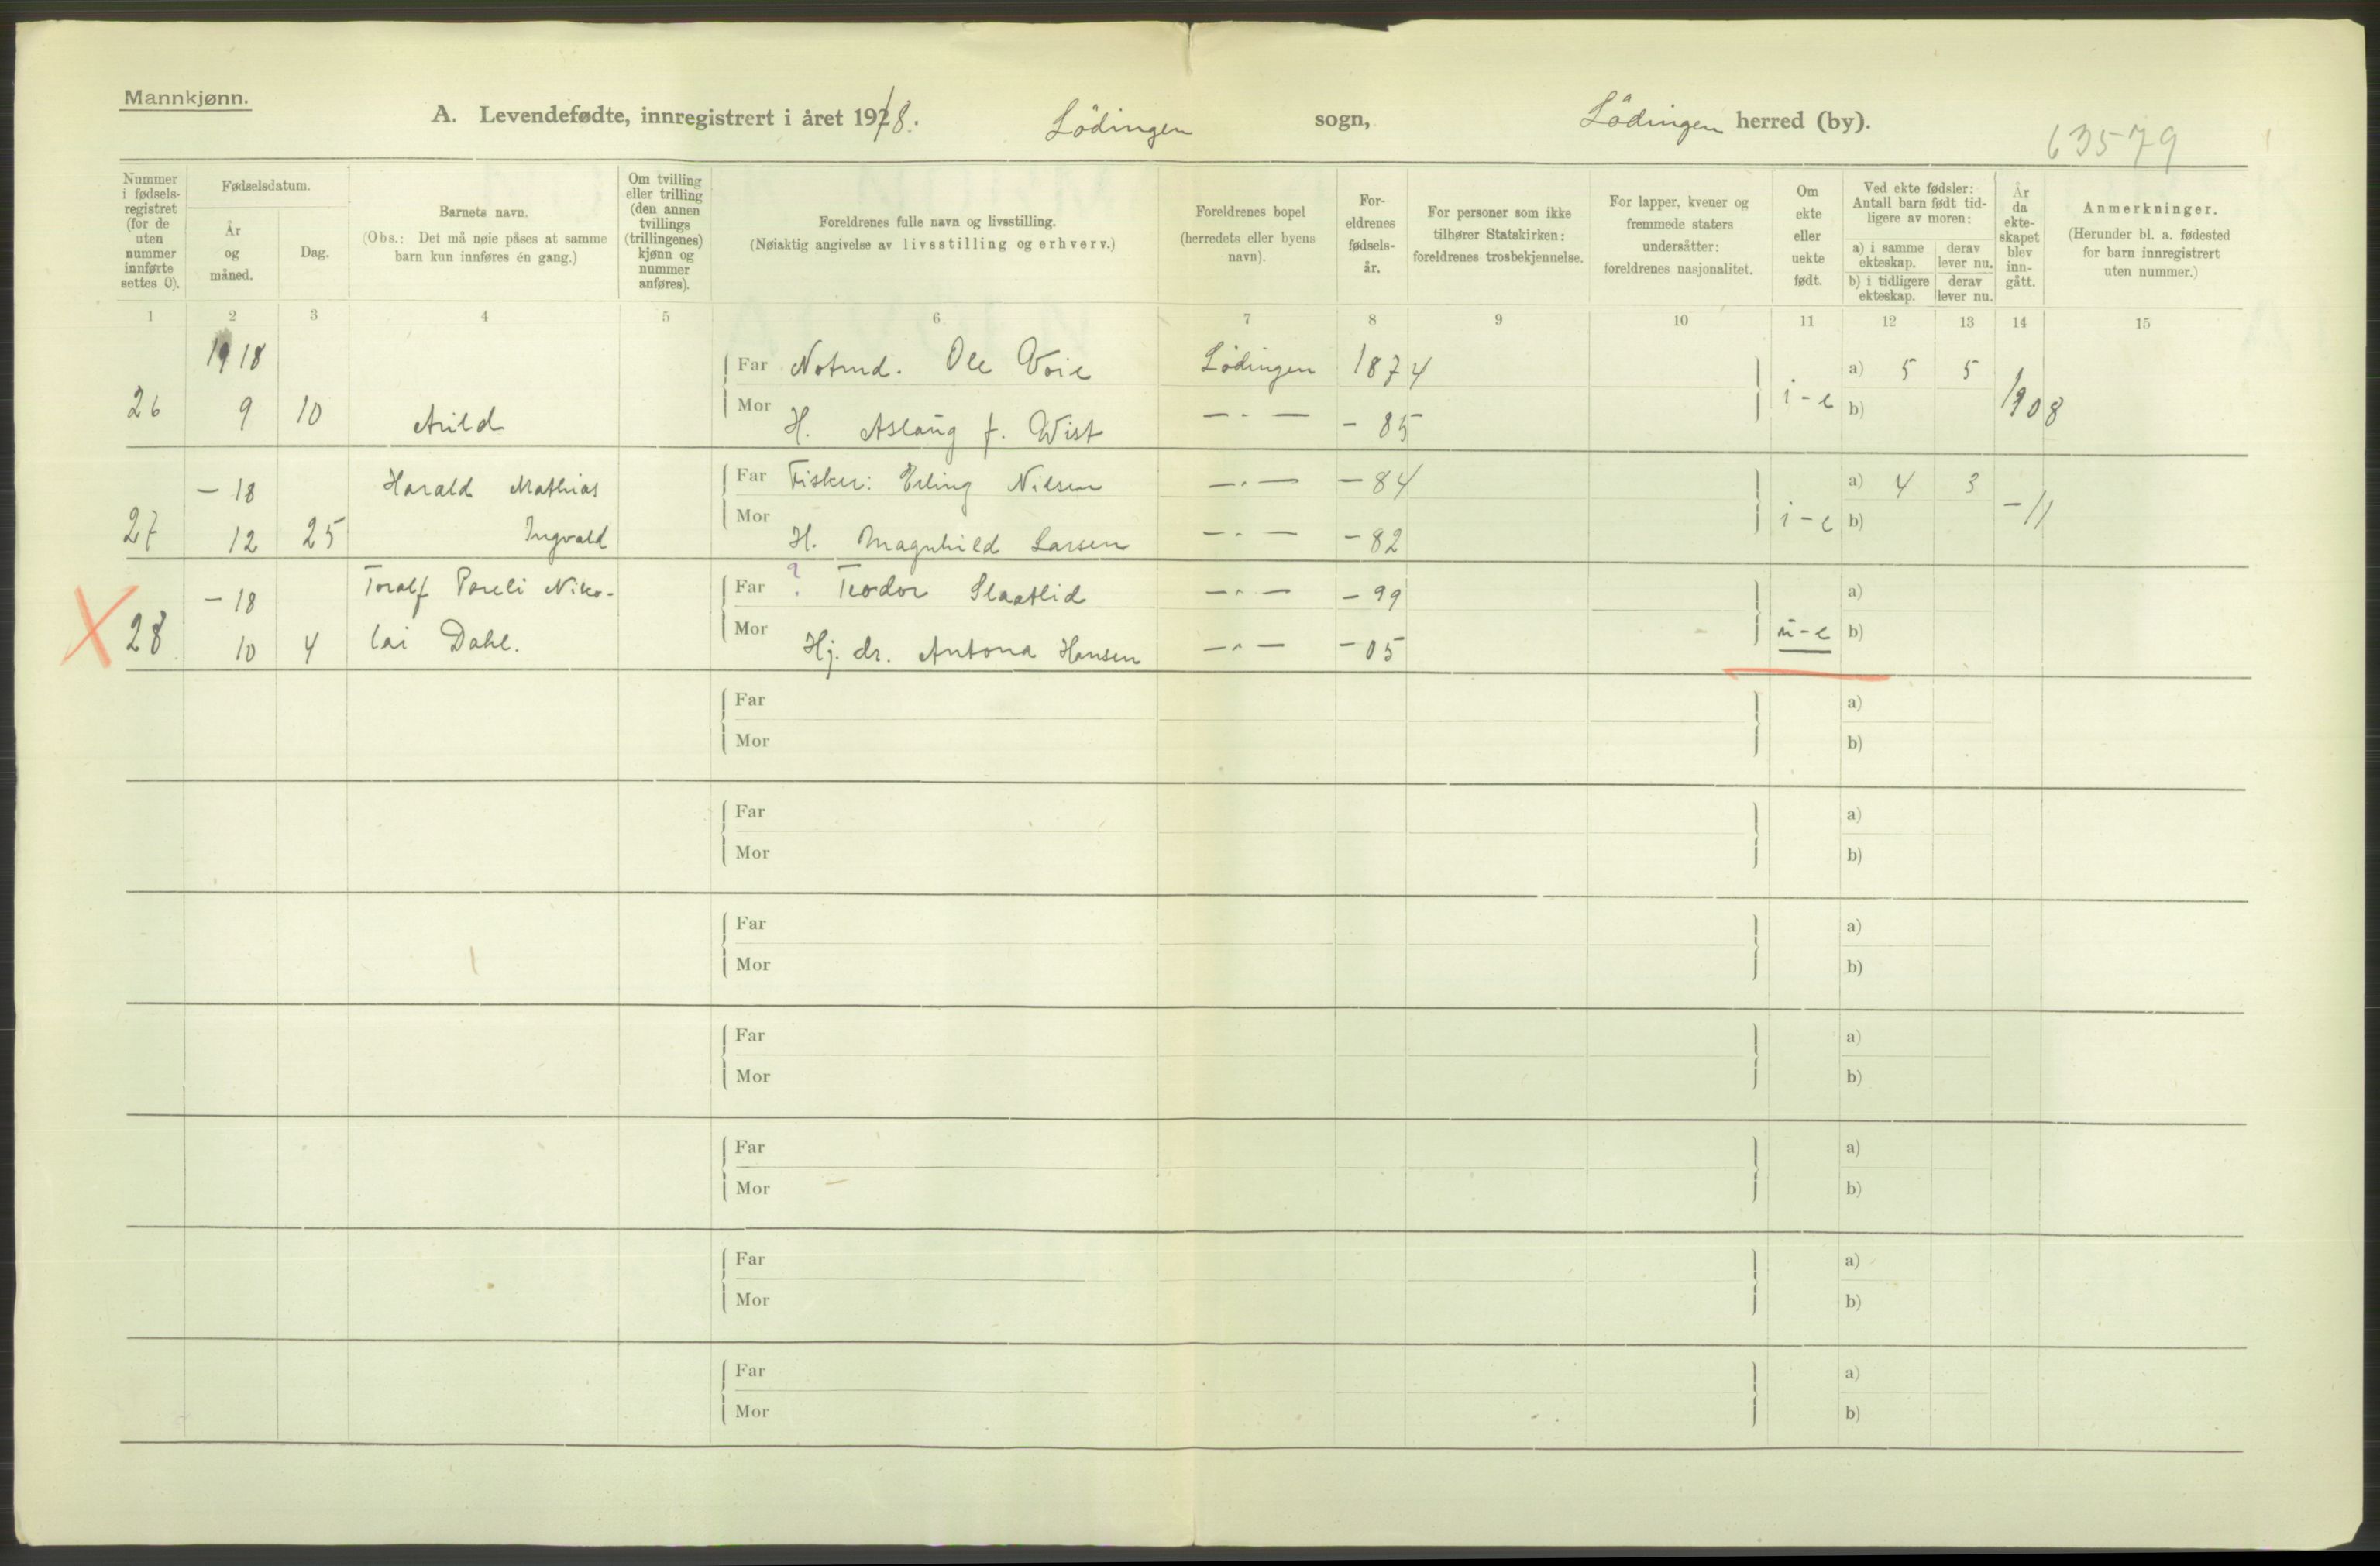 Mannkjønn.
A. Levendefødte, innregistrert i året 1918. Lödingen sogn, Lödingen herred (by).
63579
Nummer i fødsels-registret (for de uten nummer innførte settes 0).
Fødselsdatum.
År og måned.
Dag.
Barnets navn.
(Obs.: Det må nøie påses at samme barn kun innføres én gang.)
Om tvilling eller trilling (den annen tvillings (trillingenes) kjønn og nummer anføres).
Foreldrenes fulle navn og livsstilling.
(Nøiaktig angivelse av livsstilling og erhverv.)
Foreldrenes bopel (herredets eller byens navn).
For-eldrenes fødsels-år.
For personer som ikke tilhører Statskirken: foreldrenes trosbekjennelse.
For lapper, kvener og fremmede staters undersåtter: foreldrenes nasjonalitet.
Om ekte eller uekte født.
Ved ekte fødsler: Antall barn født tid-ligere av moren:
a) i samme ekteskap.
derav lever nu.
b) i tidligere ekteskap.
derav lever nu.
År da ekte-skapet blev inn-gått.
Anmerkninger.
(Herunder bl. a. fødested for barn innregistrert uten nummer.)
1 2 3 4 5 6 7 8 9 10 11 12 13 14 15
1918 Far Ole Voie Lödingen 1874 a) 5 5
26 9 10 Arild Mor H. Aslaug f. Wist — " — - 85 i-e b) 1908
- 18 Harald Mathias Far Fisker: Erling Nilsen — " — - 84 a) 4 3
27 12 25 Ingvald Mor H. Magnhild Larsen — " — - 82 i-e b) - 11
- 18 Toralf Pareli Niko- Far ? Teodor Slaatlid — " — - 99 a)
X 28 10 4 lai Dahl. Mor Hj. dr. Antona Hansen — " — - 05 u-e b)
Far a)
Mor b)
Far a)
Mor b)
Far a)
Mor b)
Far a)
Mor b)
Far a)
Mor b)
Far a)
Mor b)
Far a)
Mor b)